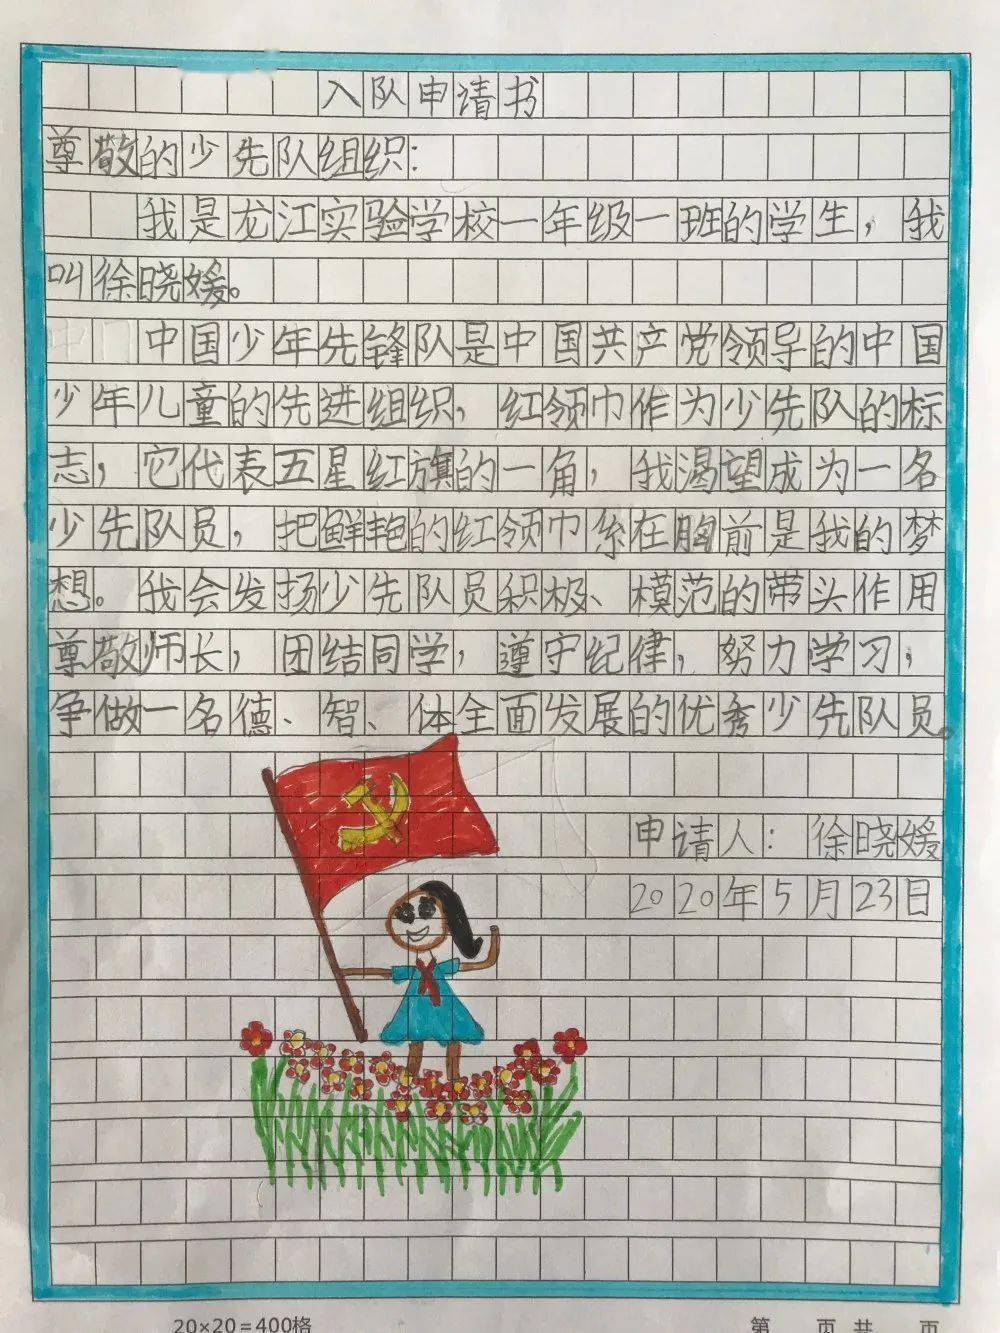 入队申请书
尊敬的少先队组织：
我是龙江实验学校一年级一班的学生，我
叫徐晓媛。
中国少年先锋队是中国共产党领导的中国
少年儿童的先进组织，红领巾作为少先队的标
志，它代表五星红旗的一角，我渴望成为一名
少先队员，把鲜艳的红领巾系在胸前是我的梦
想。我会发扬少先队员积极、模范的带头作用
尊敬师长，团结同学，遵守纪律，努力学习，
争做一名德、智、体全面发展的优秀少先队员。
申请人：徐晓媛
2020年5月23日
20×20=400格
第 页 共 页